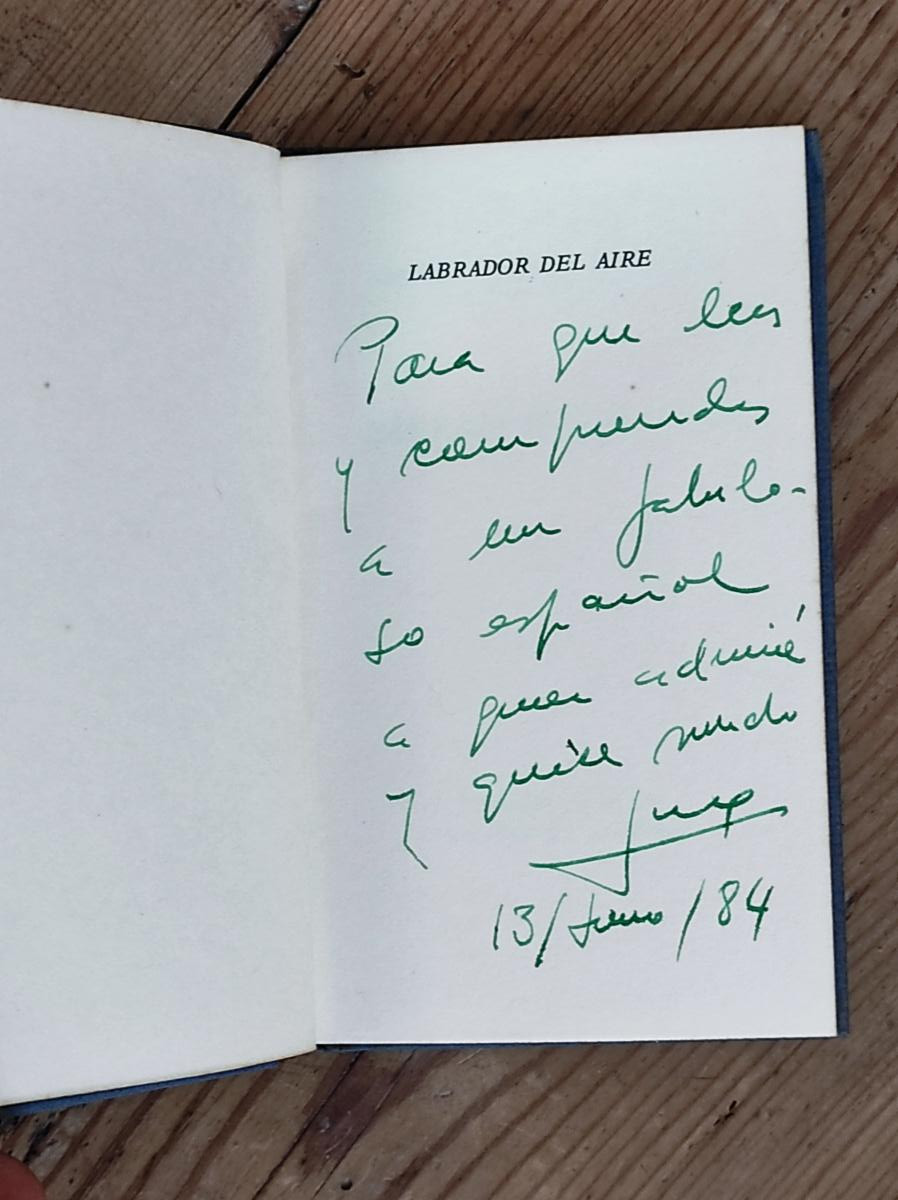 LABRADOR DEL AIRE
Para que leas
y comprendas
a un fabulo-
so español
a quien admiré
y quise mucho
13/Junio/84